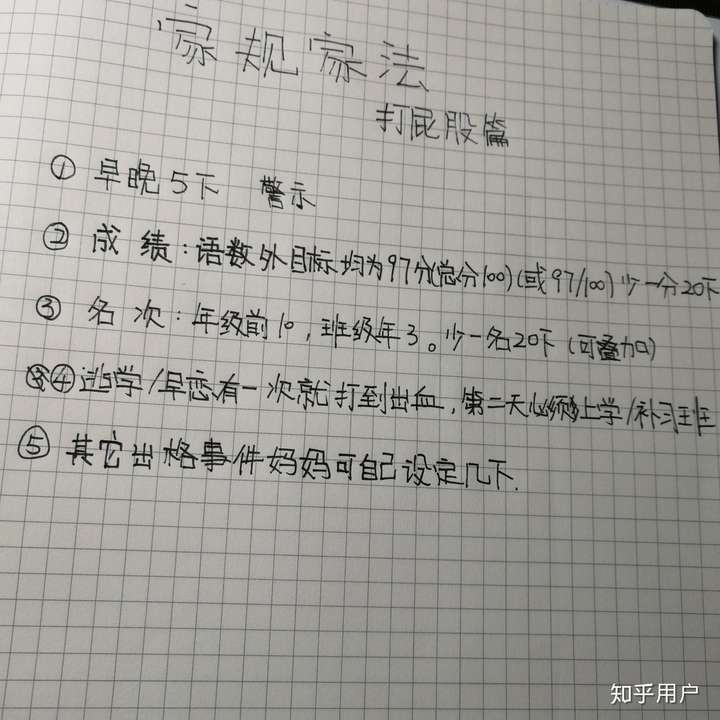 家规家法
打屁股篇
① 早晚5下 警示
② 成绩：语数外目标均为97分(总分100)(或97/100)少一分20下
③ 名次：年级前10，班级年3。少一名20下(可叠加)
④ 逃学/早恋有一次就打到出血，第二天必须上学/补习班
⑤ 其它出格事件妈妈可自己设定几下.
知乎用户